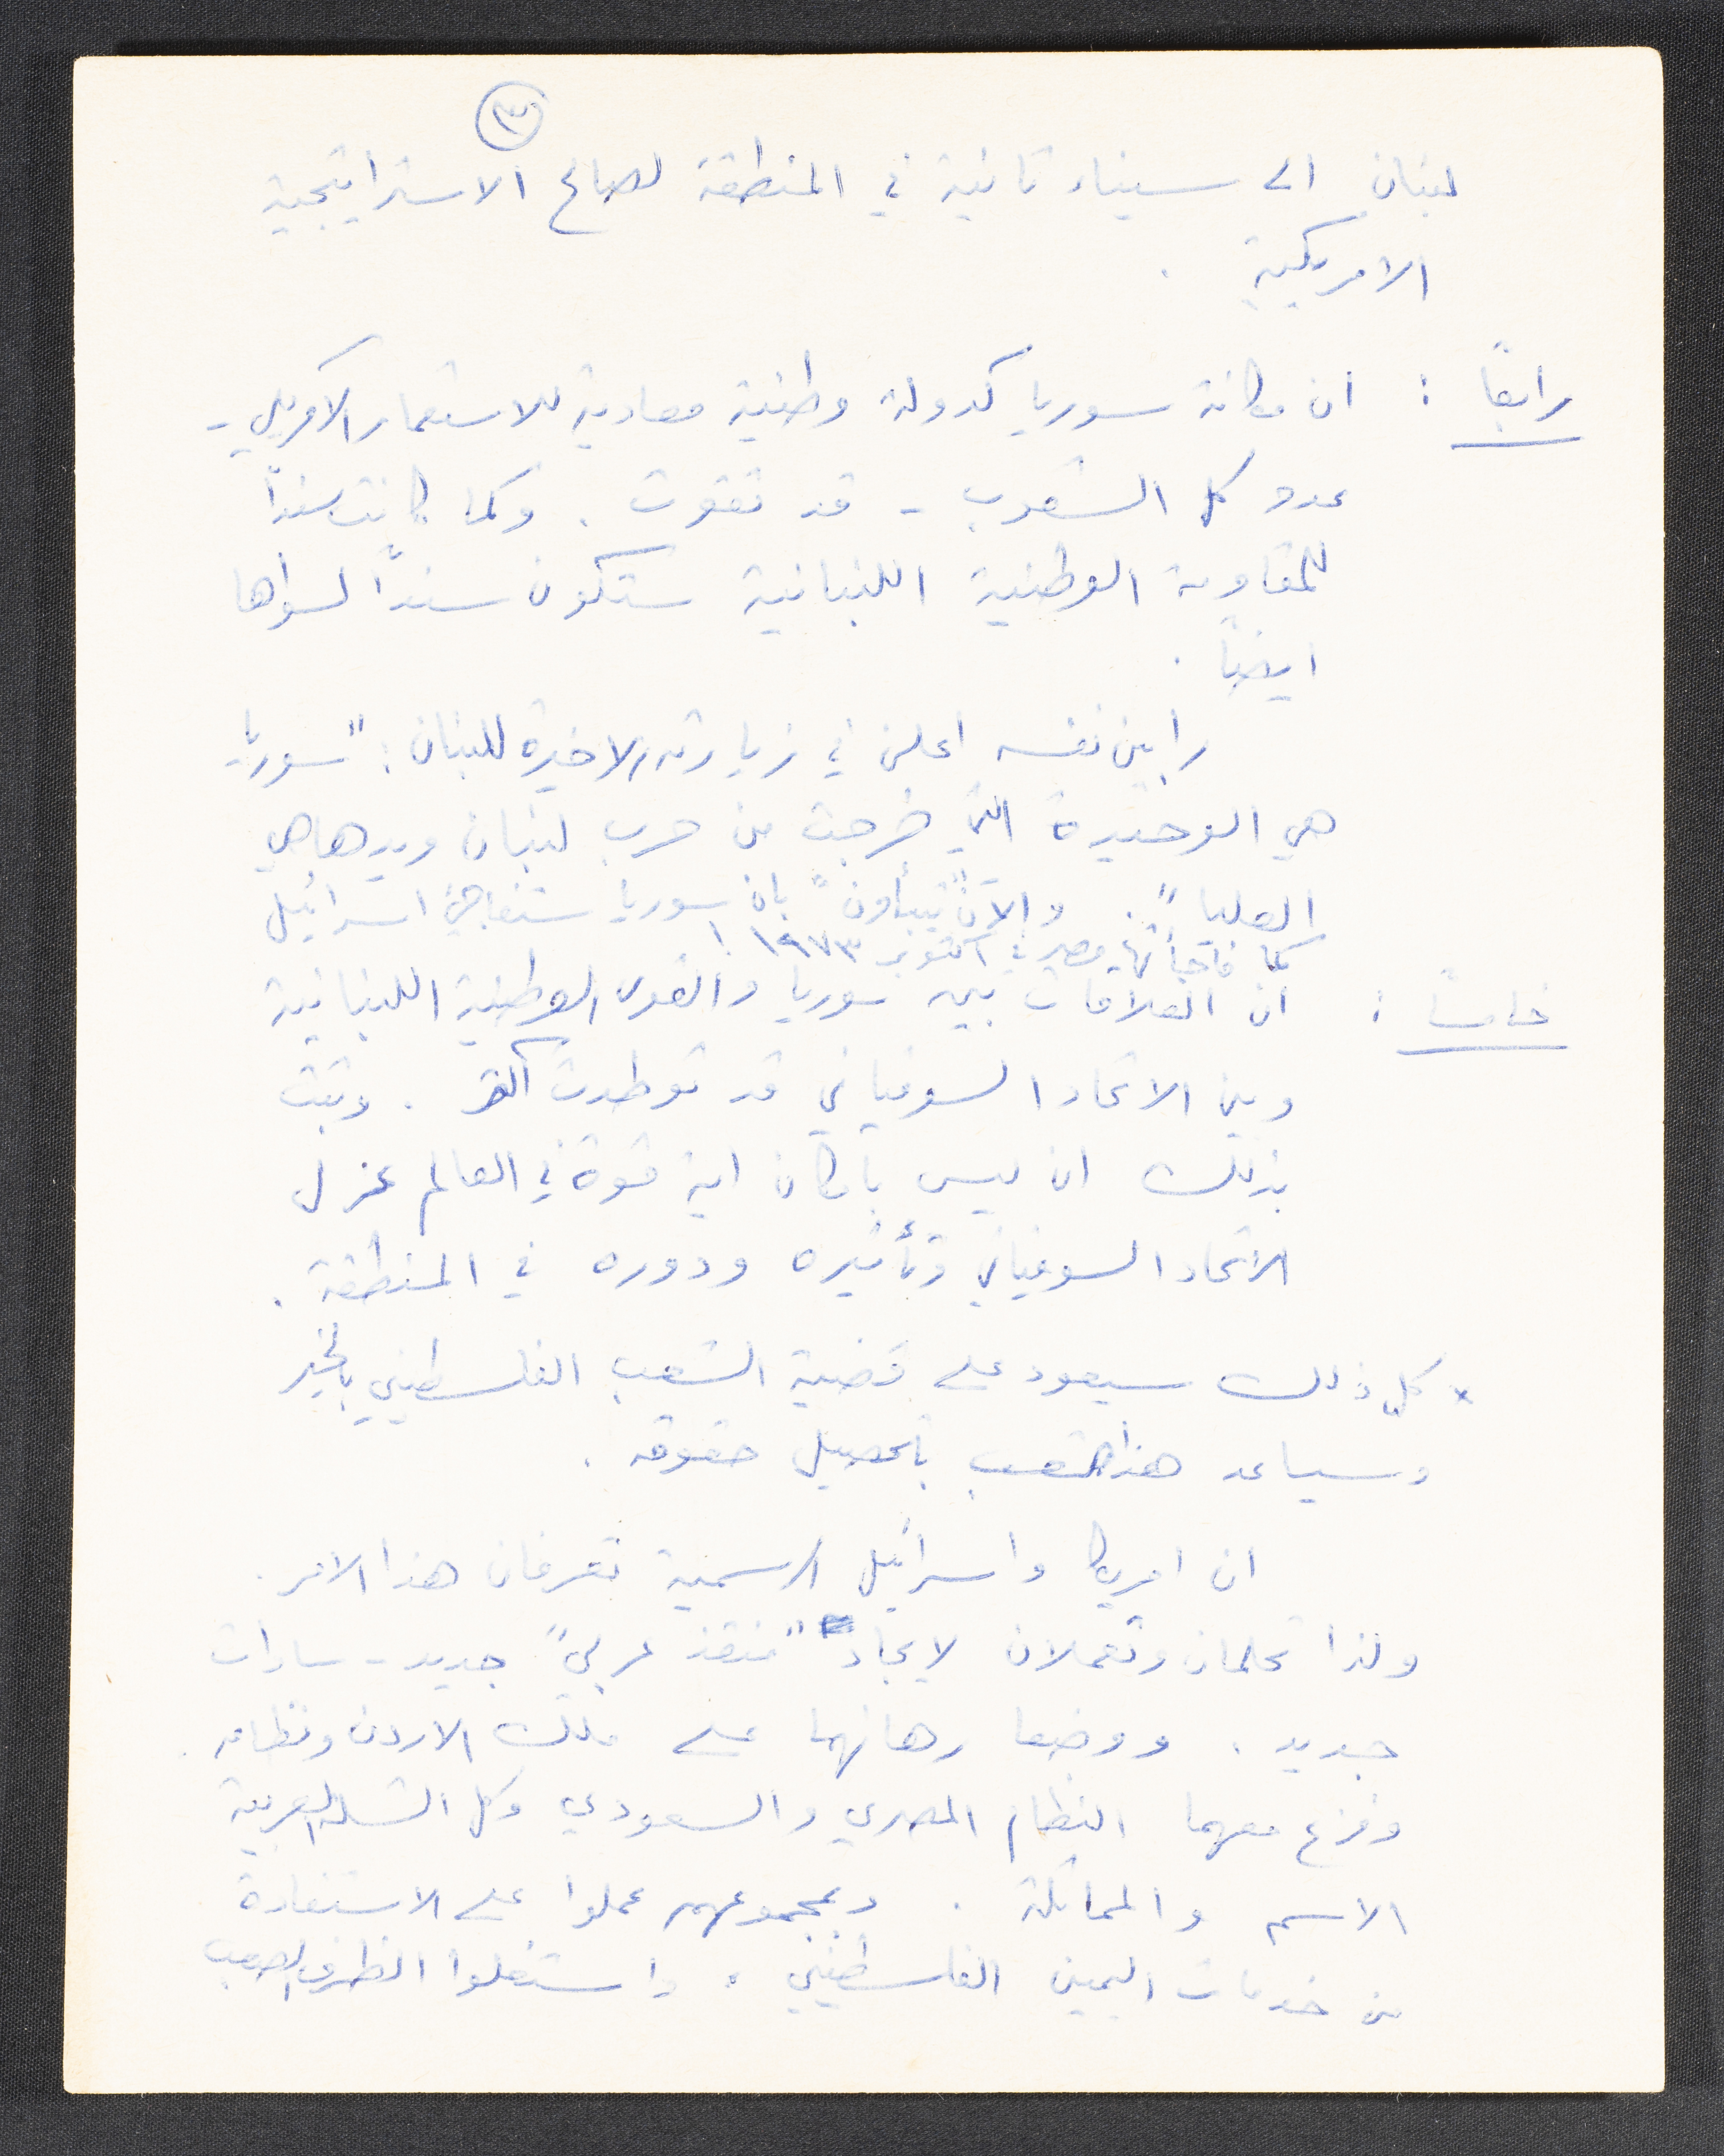 ٣
لبنان الى سيناء ثانية في المنطقة لصالح الاستراتيجية
الامريكية .
رابعاً : ان مكانة سوريا كدولة وطنية معادية للاستعمار الامريكي -
عدو كل الشعوب - قد تقوت . وكما كانت سنداً
للمقاومة الوطنية اللبنانية ستكون سنداً لسواها
ايضاً .
رابين نفسه اعلن في زيارته الاخيرة للبنان : "سوريا
هي الوحيدة التي خرجت من حرب لبنان ويدها هي
العليا". والآن "يتنبأون" بان سوريا ستفاجئ اسرائيل
كما فاجأتها مصر في اكتوبر ١٩٧٣ !
خامساً : ان العلاقات بين سوريا والقوى الوطنية اللبنانية
وبين الاتحاد السوفياتي قد توطدت اكثر . وثبت
بذلك ان ليس بامكان اية قوة في العالم عزل
الاتحاد السوفياتي وتأثيره ودوره في المنطقة .
* كل ذلك سيعود على قضية الشعب الفلسطيني بالخير
وسيساعد هذا الشعب بتحصيل حقوقه .
ان امريكا واسرائيل الرسمية تعرفان هذا الامر .
ولذا تحلمان وتعملان لايجاد "منقذ عربي" جديد - سادات
جديد . ووضعا رهانهما على ملك الاردن ونظامه .
وفزع معهما النظام المصري والسعودي وكل الشلة العربية
الاسم والمماثلة . وبمجموعهم عملوا على الاستفادة
من خدمات اليمين الفلسطيني . واستغلوا الظرف الصعب